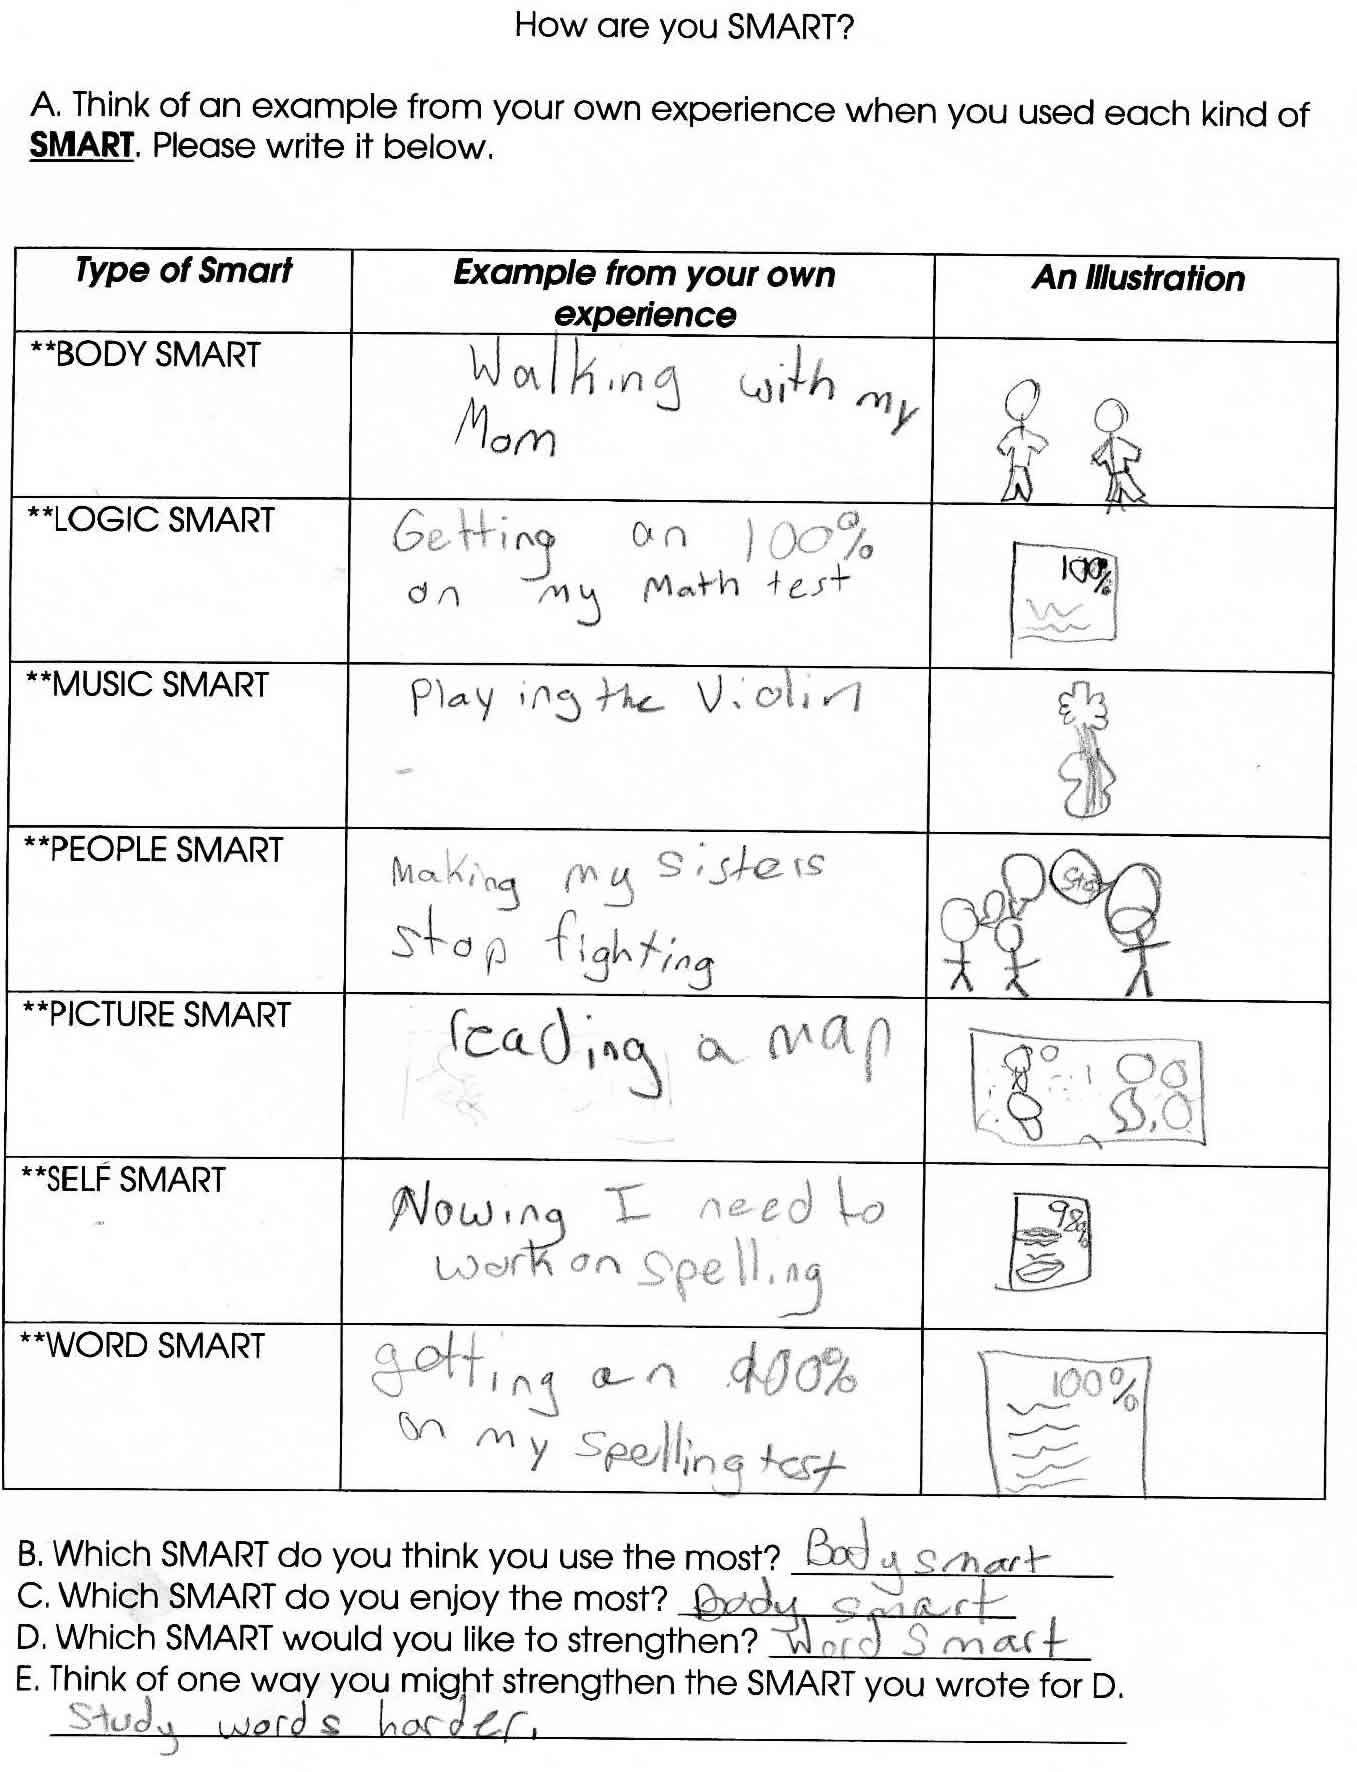 How are you SMART?
A. Think of an example from your own experience when you used each kind of
SMART. Please write it below.
Type of Smart
Example from your own
experience
An Illustration
**BODY SMART
Walking with my
Mom
**LOGIC SMART
Getting an 100%
on my Math test
100%
**MUSIC SMART
Playing the Violin
**PEOPLE SMART
Making my sisters
stop fighting
**PICTURE SMART
reading a map
**SELF SMART
Nowing I need to
work on spelling
98%
**WORD SMART
getting an 100%
on my spelling test
100%
B. Which SMART do you think you use the most? Body smart
C. Which SMART do you enjoy the most? Body smart
D. Which SMART would you like to strengthen? Word Smart
E. Think of one way you might strengthen the SMART you wrote for D.
Study words harder.